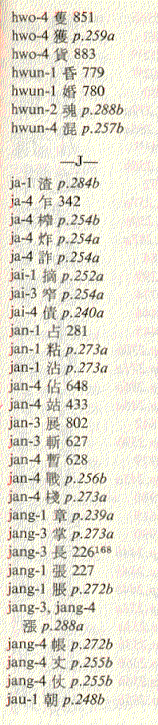 hwo-4 獲 851
hwo-4 獲 p.259a
hwo-4 貨 883
hwun-1 昏 779
hwun-1 婚 780
hwun-2 魂 p.288b
hwun-4 混 p.257b
—J—
ja-1 渣 p.284b
ja-4 乍 342
ja-4 榨 p.254b
ja-4 炸 p.254a
ja-4 詐 p.254a
jai-1 摘 p.252a
jai-3 窄 p.254a
jai-4 債 p.240a
jan-1 占 281
jan-1 粘 p.273a
jan-1 沾 p.273a
jan-4 佔 648
jan-4 站 433
jan-3 展 802
jan-3 斬 627
jan-4 暫 628
jan-4 戰 p.256b
jan-4 棧 p.273a
jang-1 章 p.239a
jang-3 掌 p.273a
jang-3 長 226¹⁶⁸
jang-1 張 227
jang-1 脹 p.272b
jang-3, jang-4
漲 p.288a
jang-4 帳 p.272b
jang-4 丈 p.255b
jang-4 仗 p.255b
jau-1 朝 p.248b